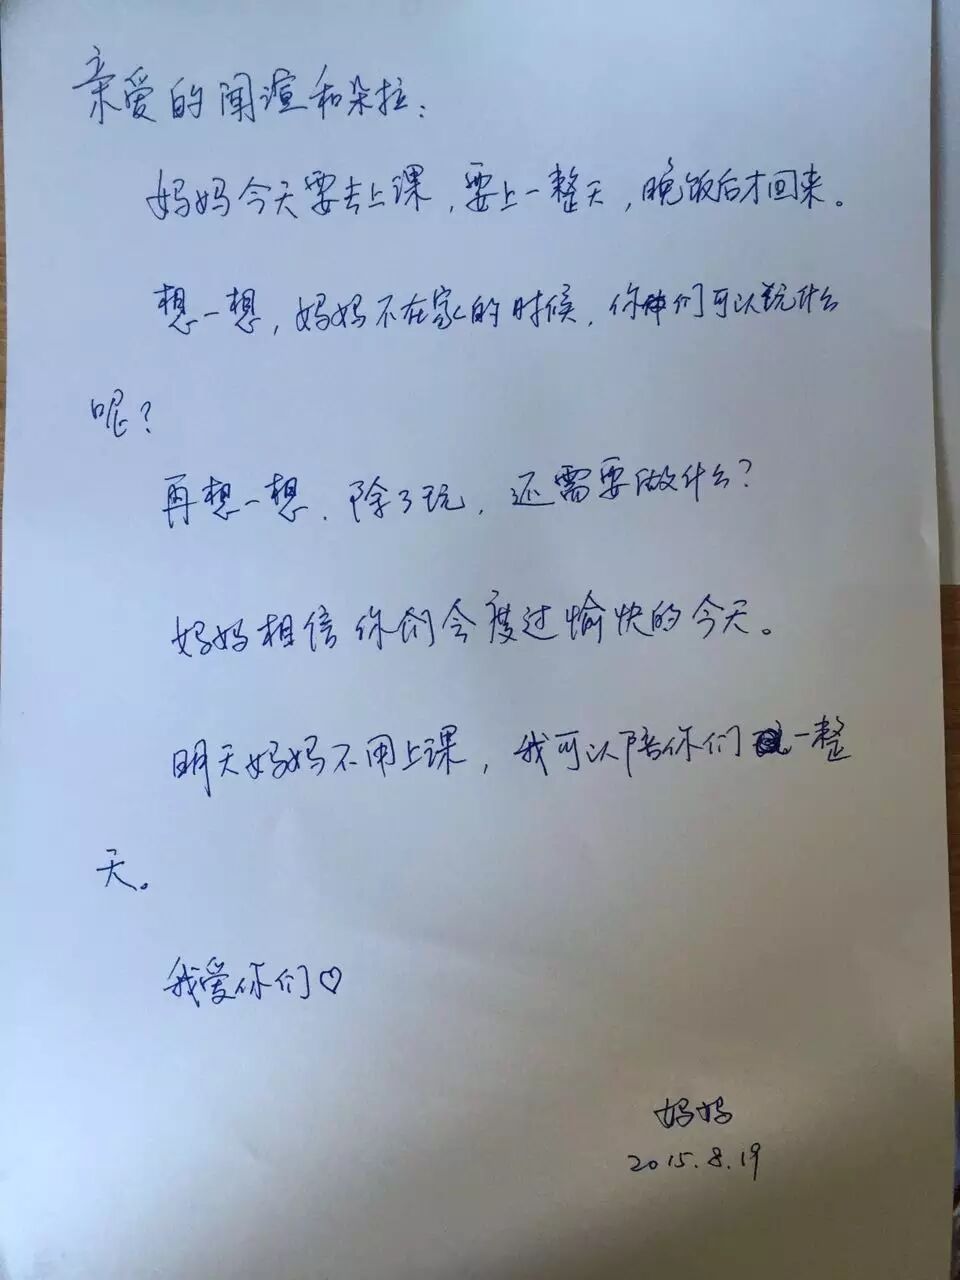 亲爱的闻渲和朵拉：
妈妈今天要去上课，要上一整天，晚饭后才回来。
想一想，妈妈不在家的时候，你们可以玩什么
呢？
再想一想，除了玩，还需要做什么？
妈妈相信你们会度过愉快的今天。
明天妈妈不用上课，我可以陪你们一整
天。
我爱你们♡
妈妈
2015.8.19